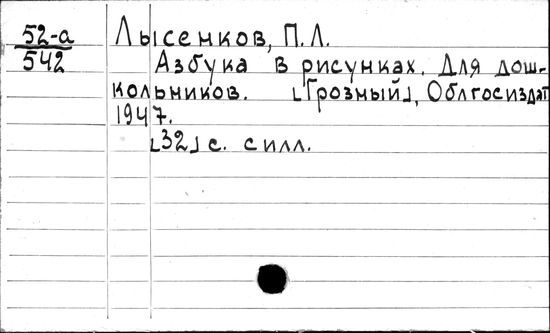 52-а
542
Лысенков, П.Л.
Азбука в рисунках. Для дош-
кольников. [Грозный], Облгосиздат
1947.
[32] с. силл.